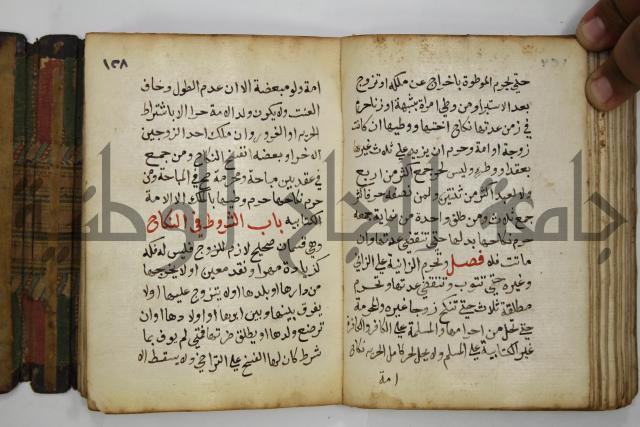 حتى يحرم الموطوة باخراج عن ملكه او تزوج
بعد الاستبرا ومن وطي امراة بشبهة او زنا حرم
في زمن عدتها نكاح اختها ووطيها ان كانت
زوجة او امة وحرم ان يزيد على ثلاث غيرها
بعقد او وطء وليس لحر جمع اكثر من اربع
ولا لعبد اكثر من ثنتين ولمن نصفه حر فاكثر
جمع ثلاث ومن طلق واحدة من نهاية جمعه
حرم نكاحها بدلها حتى تنقضي عدتها وان
ماتت فلا فصل وتحرم الزانية على الزاني
وغيره حتى تتوب وتنقضي عدتها وتحرم
مطلقة ثلاث حتى تنكح زوجا غيره والمحرمة
حتى تحل من احرامها والمسلمة على الكافر والكافرة
غير الكتابية على المسلم ولا يحل لحر كامل الحرية نكاح
امة
١٣٨
امة ولو مبعضة الا ان عدم الطول وخاف
العنت ولا يكون ولد الامة حرا الا باشتراط
الحرية او الغرور وان ملك احد الزوجين
الاخر او بعضه انفسخ النكاح ومن جمع
في عقد بين مباحة ومحرمة صح في المباحة ومن
حرم نكاحها حرم وطيها بالملك الا الامة
الكتابية باب الشروط في النكاح
وهي قسمان صحيح لازم للزوج فليس له فكه
كزيادة مهر او نقد معين او لا يخرجها
من دارها او بلدها او لا يتزوج عليها او لا
يفرق بينها وبين ابويها او اولادها او ان
ترضع ولدها او يطلق ضرتها فمتى لم يوف بما
شرط كان لها الفسخ على التراخي ولا يسقط الا
جامعة النجاح الوطنية